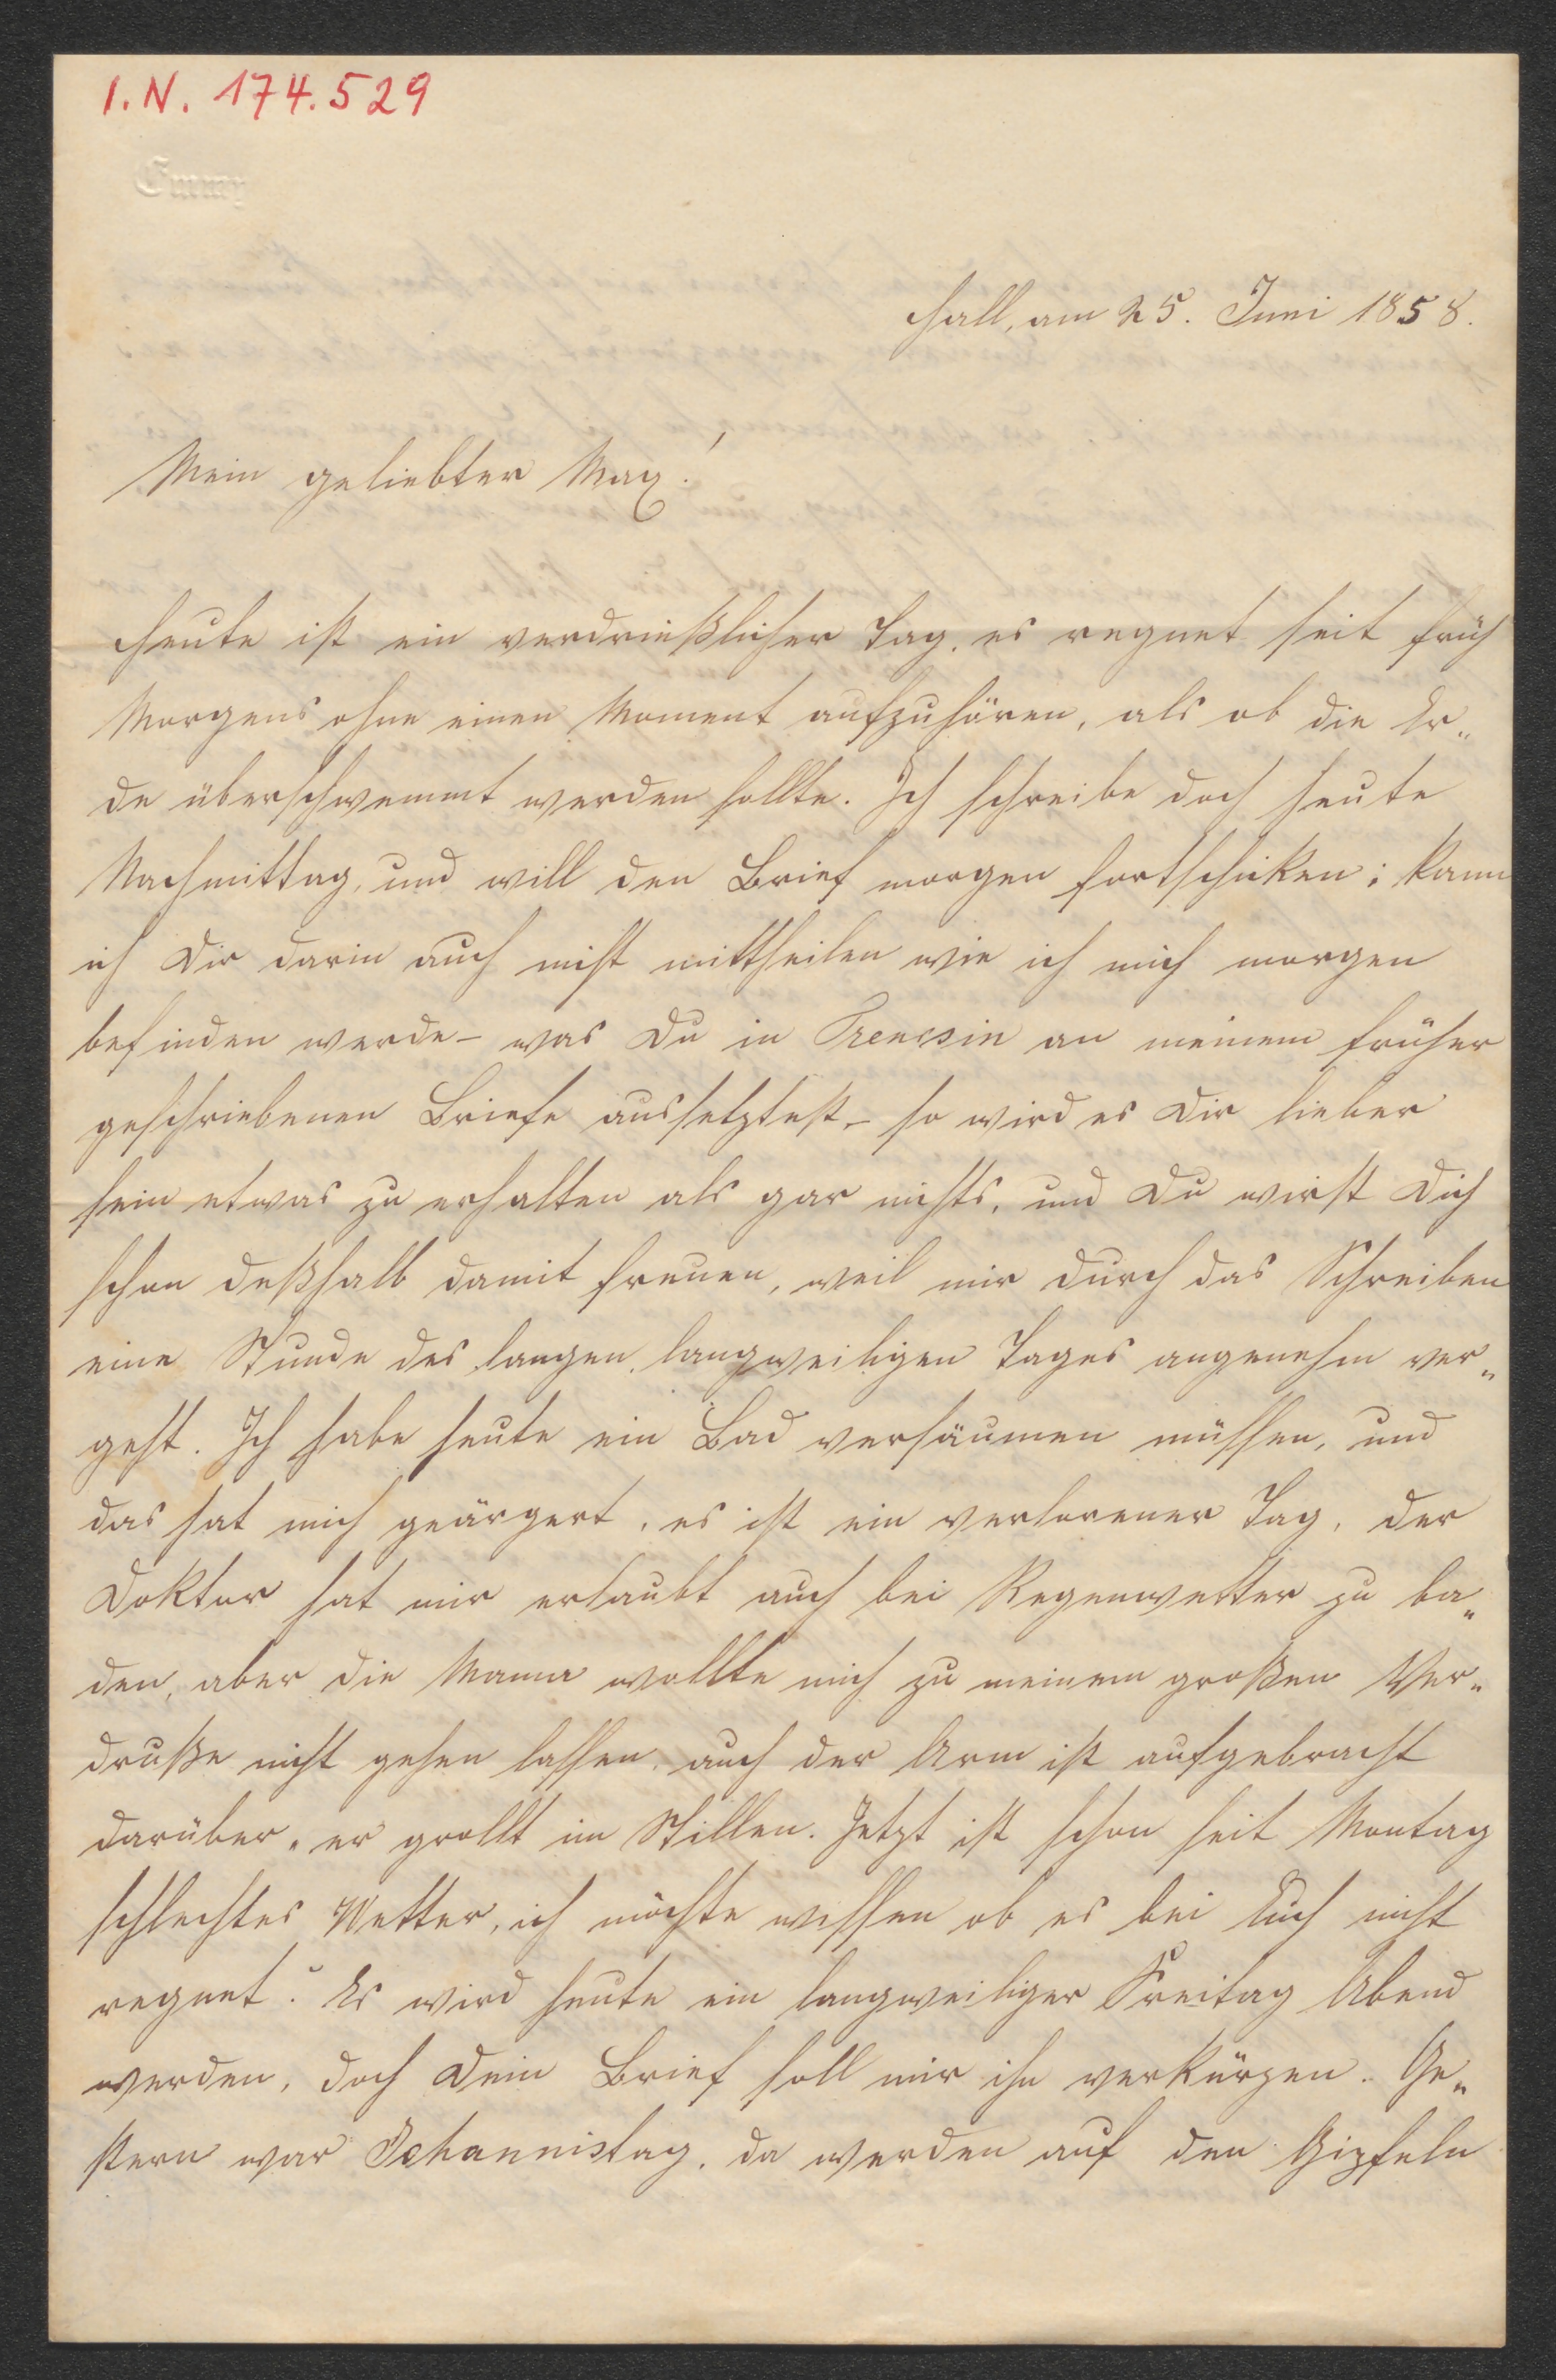 I.N. 174.529
Emmy
Hall, am 25. Juni 1858.
Mein geliebter Max!
Heute ist ein verdrießlicher Tag, es regnet seit früh
Morgens ohne einen Moment aufzuhören, als ob die Er„
de überschwemmt werden sollte. Ich schreibe doch heute
Nachmittag, und will den Brief morgen fortschicken; kann
ich Dir darin auch nicht mittheilen wie ich mich morgen
befinden werde – was Du in Trencsin an meinem früher
geschriebenen Briefe aussetztest, – so wird es Dir lieber
sein etwas zu erhalten als gar nichts, und Du wirst Dich
schon deßhalb damit freuen, weil mir durch das Schreiben
eine Stunde des langen, langweiligen Tages angenehm ver„
geht. Ich habe heute ein Bad versäumen müssen, und
das hat mich geärgert, es ist ein verlorener Tag, der
Doktor hat mir erlaubt auch bei Regenwetter zu ba„
den, aber die Mama wollte mich zu meinem großen Ver„
druße nicht gehen lassen, auch der Arm ist aufgebracht
darüber, er grollt im Stillen. Jetzt ist schon seit Montag
schlechtes Wetter, ich möchte wissen ob es bei Euch nicht
regnet? Es wird heute ein langweiliger Freitag Abend
werden, doch Dein Brief soll mir ihn verkürzen. Ge„
stern war Johannistag, da werden auf den Gipfeln